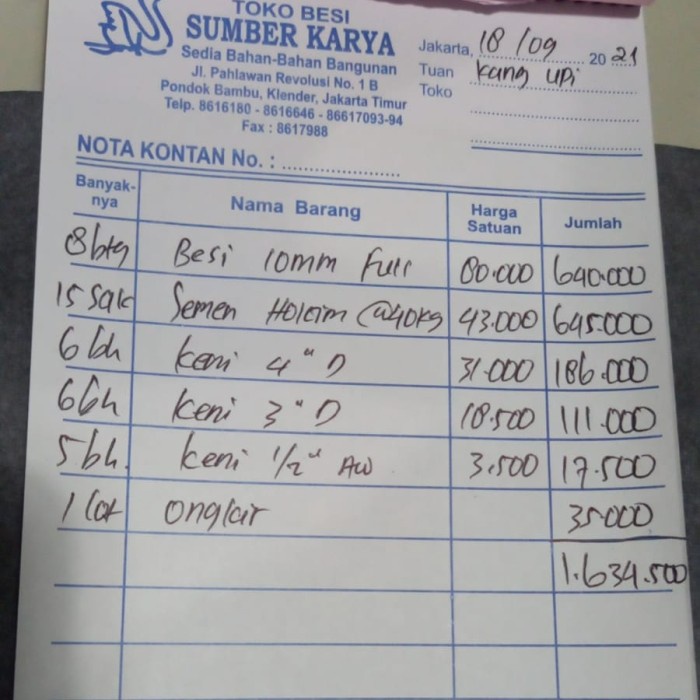 TOKO BESI
SUMBER KARYA
Sedia Bahan-Bahan Bangunan
Jl. Pahlawan Revolusi No. 1 B
Pondok Bambu, Klender, Jakarta Timur
Telp. 8616180 - 8616646 - 86617093-94
Fax : 8617988
Jakarta, 18/09 2021
Tuan Kang Upi
Toko
NOTA KONTAN No. :
Banyak-nya Nama Barang Harga Satuan Jumlah
8 btg Besi 10mm Full 80.000 640.000
15 sak Semen Holcim @40kg 43.000 645.000
6 bh keni 4" D 31.000 186.000
6 bh keni 3" D 18.500 111.000
5 bh. keni 1/2" AW 3.500 17.500
1 Lot 35.000
1.634.500